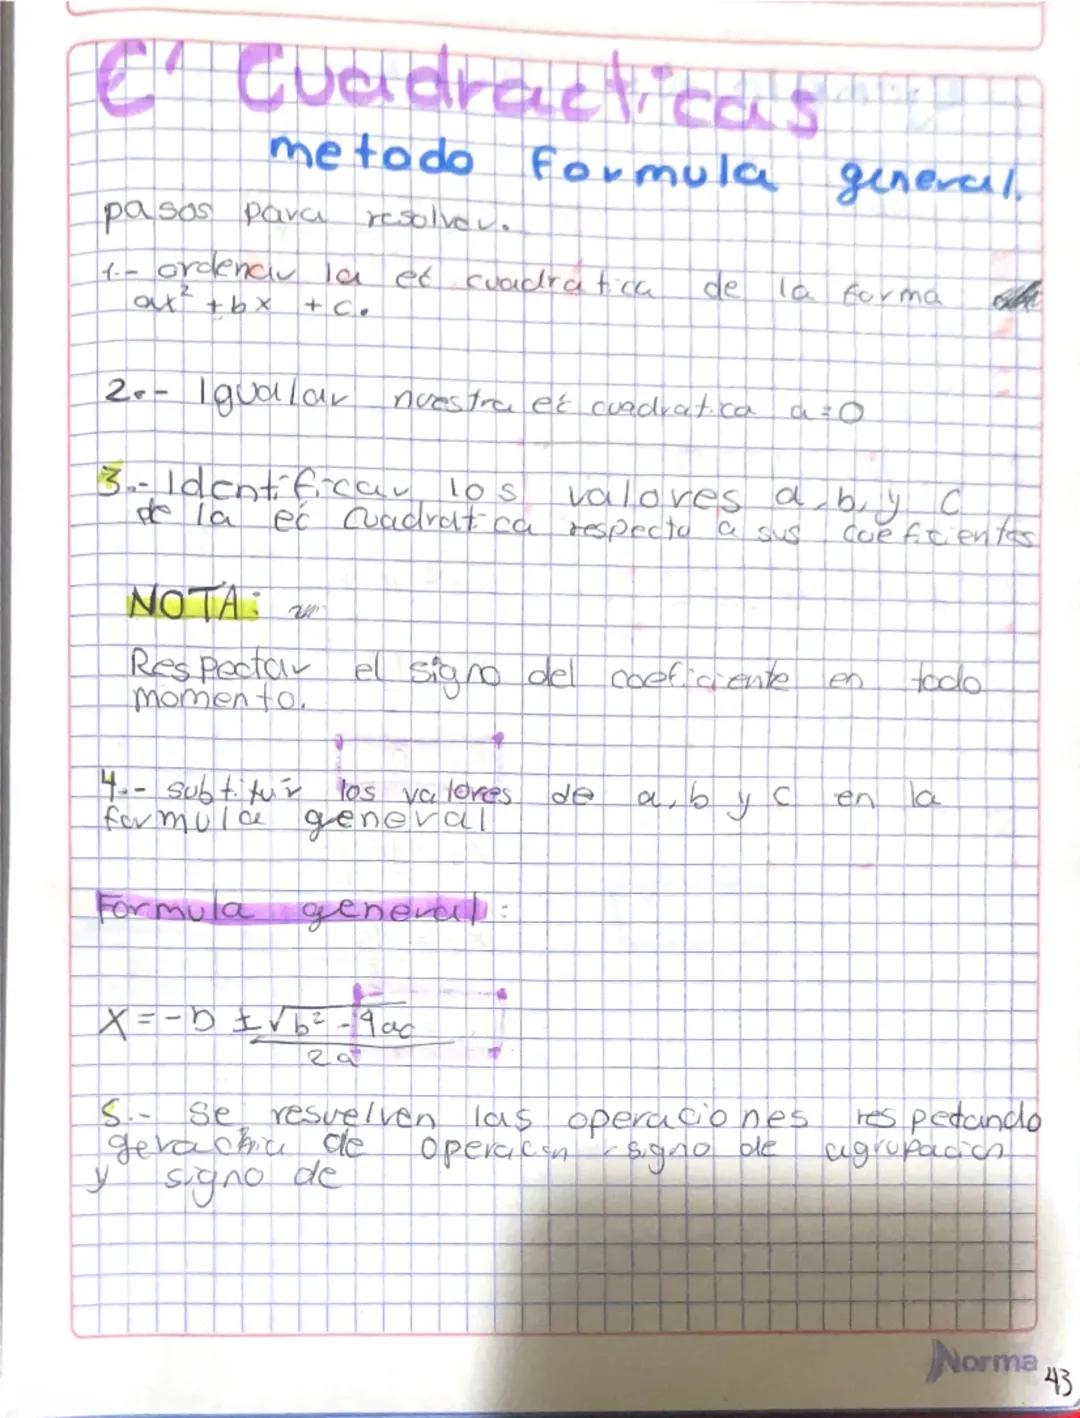 Ec Cuadracticas
metodo formula general.
pasos para resolver.
1.- ordenar la ec cuadratica de la forma
ax² + bx + c.
2.- Igualar nuestra ec cuadratica a = 0
3.- Identificar los valores a, b, y c
de la ec cuadratica respecto a sus coeficientes
NOTA:
Respectar el signo del coeficiente en todo
momento.
4.- subtituir los valores de a, b y c en la
formula general
Formula general:
X = -b ± √b² - 4ac
2a
5.- se resuelven las operaciones respetando
gerachia de operacion signo de agrupación
y signo de
Norma
43